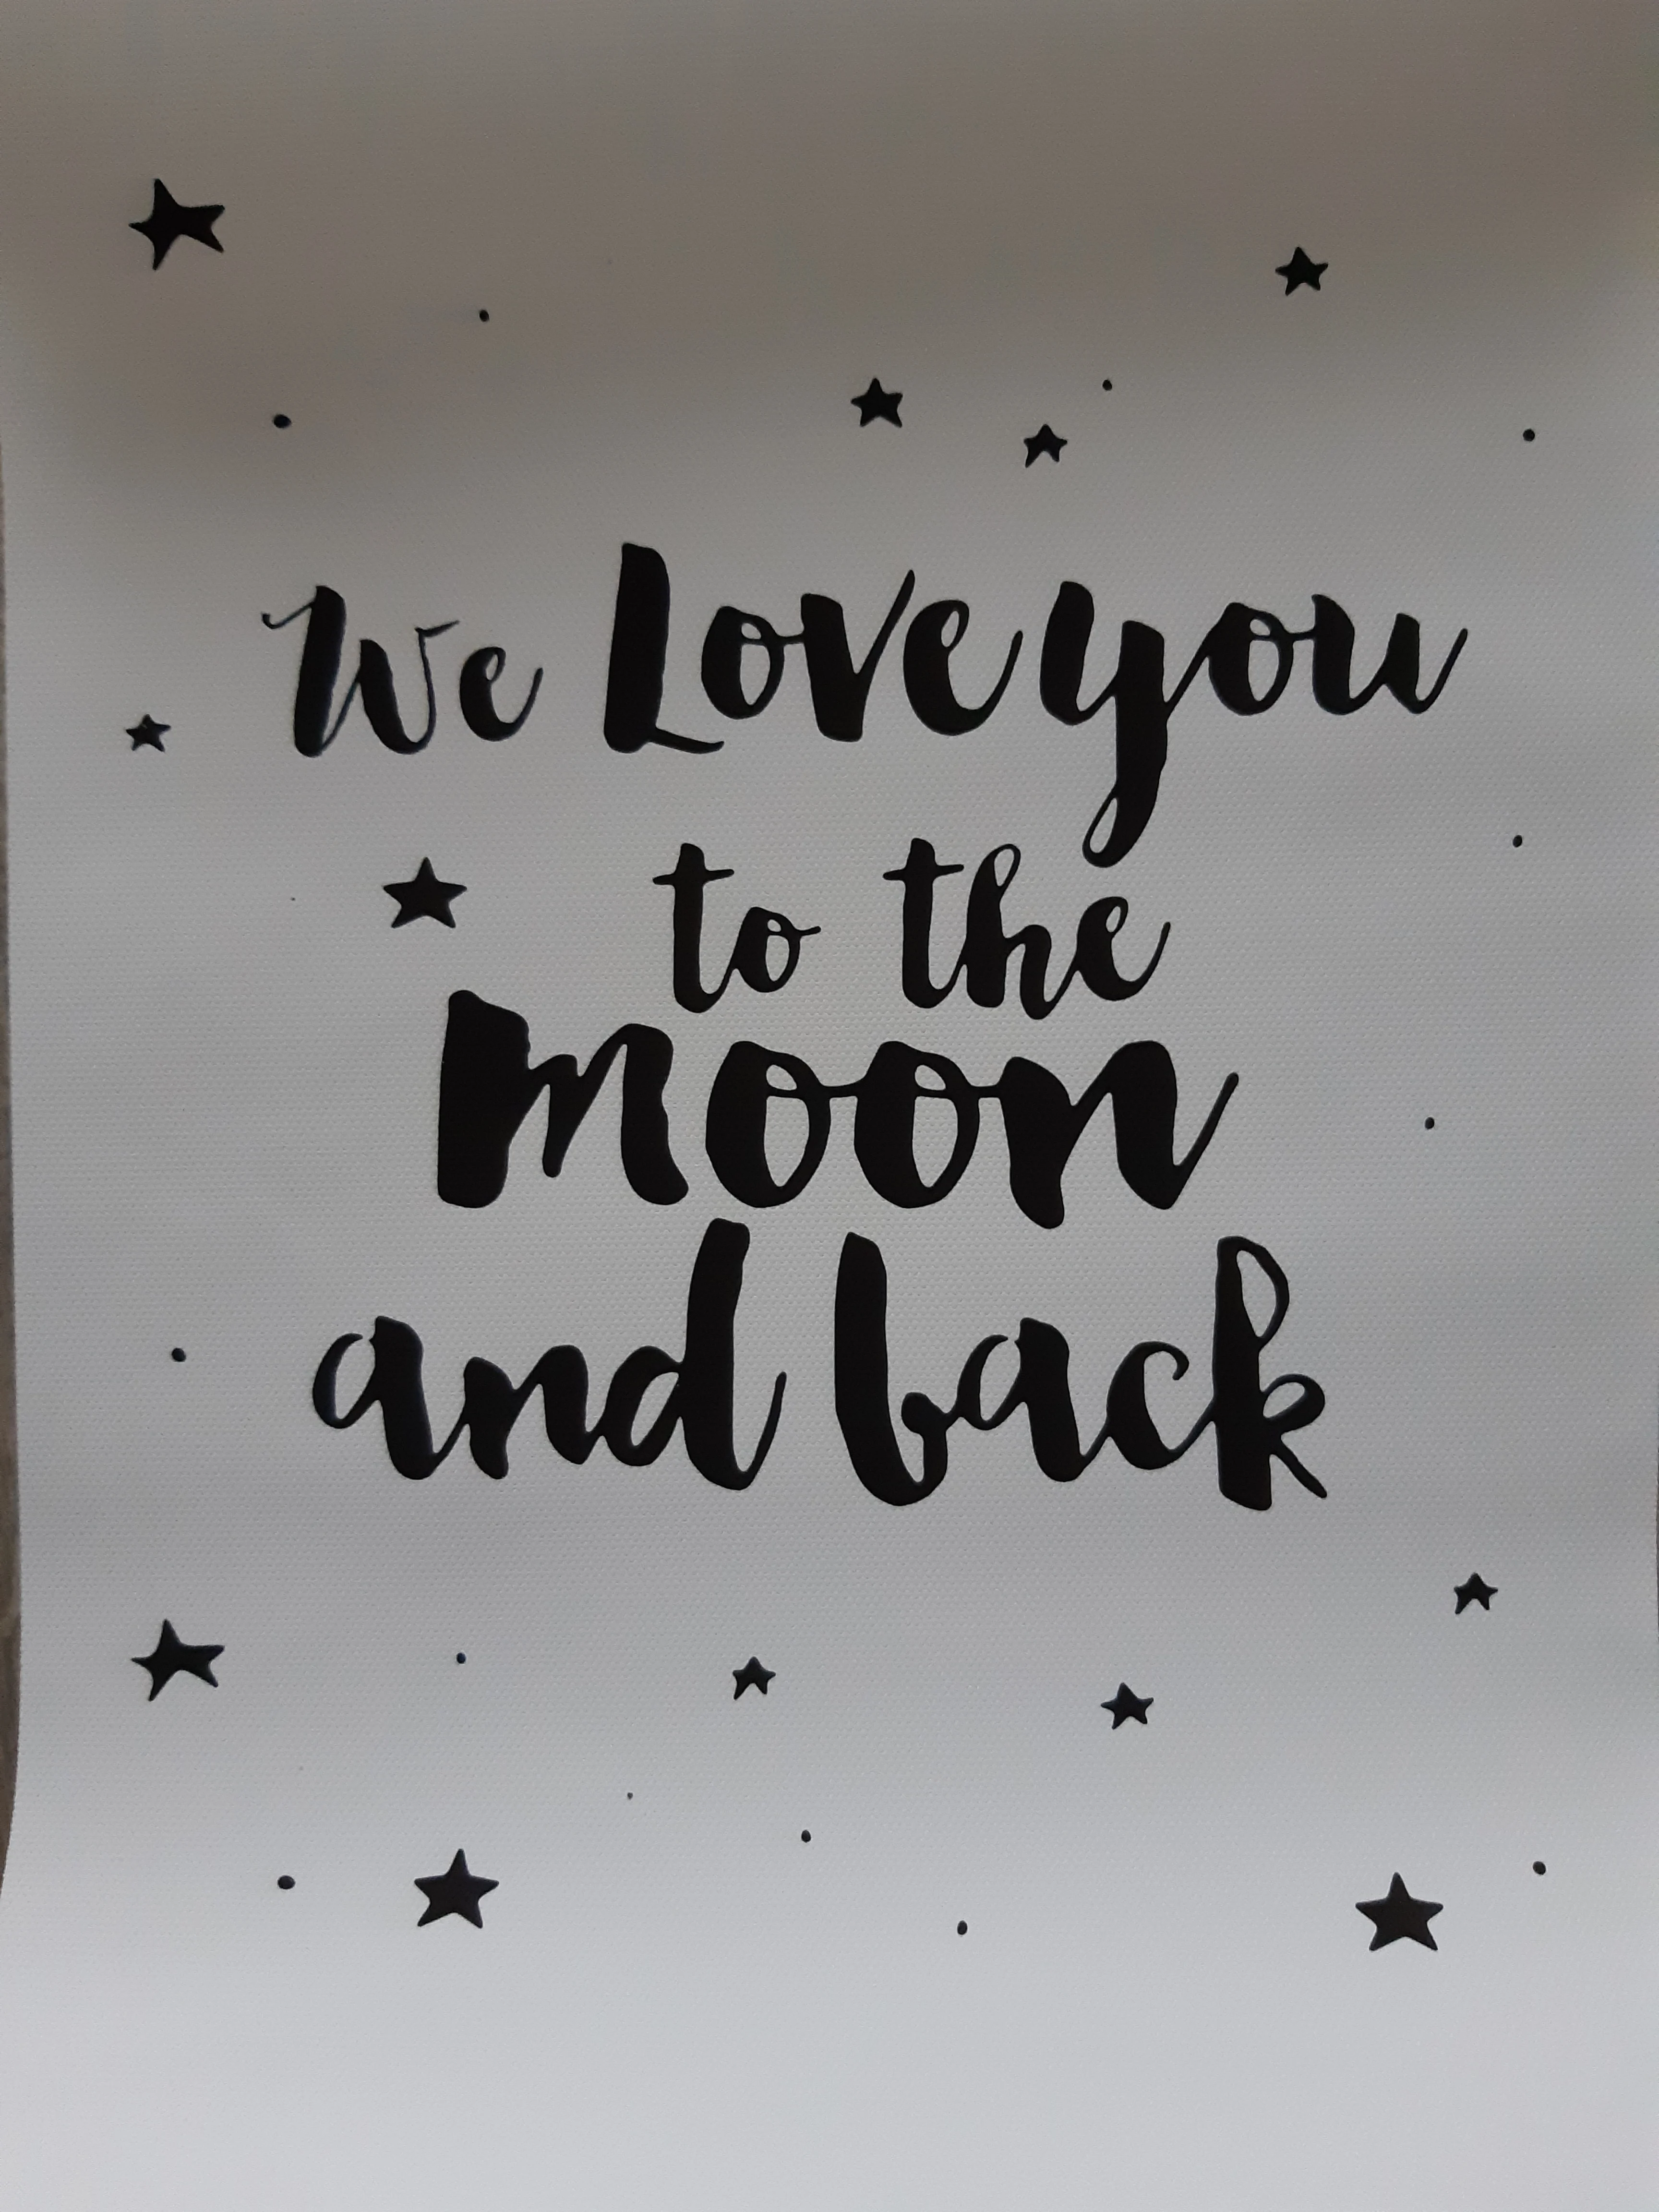 We Love you
to the
Moon
and back